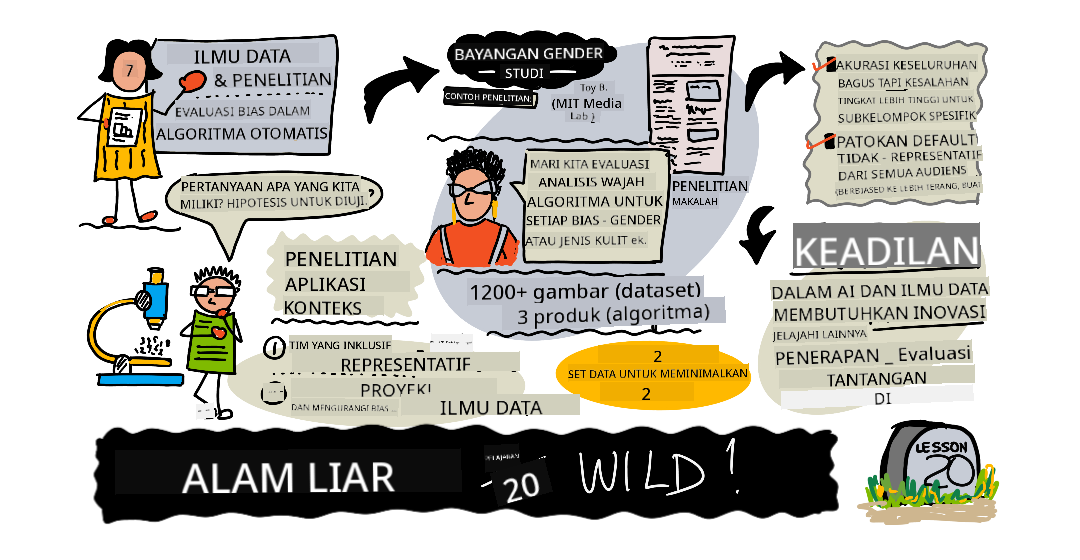 7
ILMU DATA
& PENELITIAN
EVALUASI BIAS DALAM
ALGORITMA OTOMATIS
PERTANYAAN APA YANG KITA
MILIKI? HIPOTESIS UNTUK DIUJI.
?
BAYANGAN GENDER
STUDI
CONTOH PENELITIAN:
Toy B.
(MIT Media
Lab)
MARI KITA EVALUASI
ANALISIS WAJAH
ALGORITMA UNTUK
SETIAP BIAS - GENDER
ATAU JENIS KULIT ek.
PENELITIAN
MAKALAH
1200+ gambar (dataset)
3 produk (algoritma)
AKURASI KESELURUHAN
BAGUS TAPI KESALAHAN
TINGKAT LEBIH TINGGI UNTUK
SUBKELOMPOK SPESIFIK
PATOKAN DEFAULT
TIDAK - REPRESENTATIF
DARI SEMUA AUDIENS
(BERBIASED KE LEBIH TERANG, BUAT
KEADILAN
DALAM AI DAN ILMU DATA
MEMBUTUHKAN INOVASI
JELAJAHI LAINNYA
PENERAPAN _ Evaluasi
TANTANGAN
DI
PENELITIAN
APLIKASI
KONTEKS
1 TIM YANG INKLUSIF
REPRESENTATIF
PROYEK!
DAN MENGURANGI BIAS ..
ILMU DATA
2
SET DATA UNTUK MEMINIMALKAN
2
ALAM LIAR
PELAJARAN
- 20
WILD!
LESSON
20